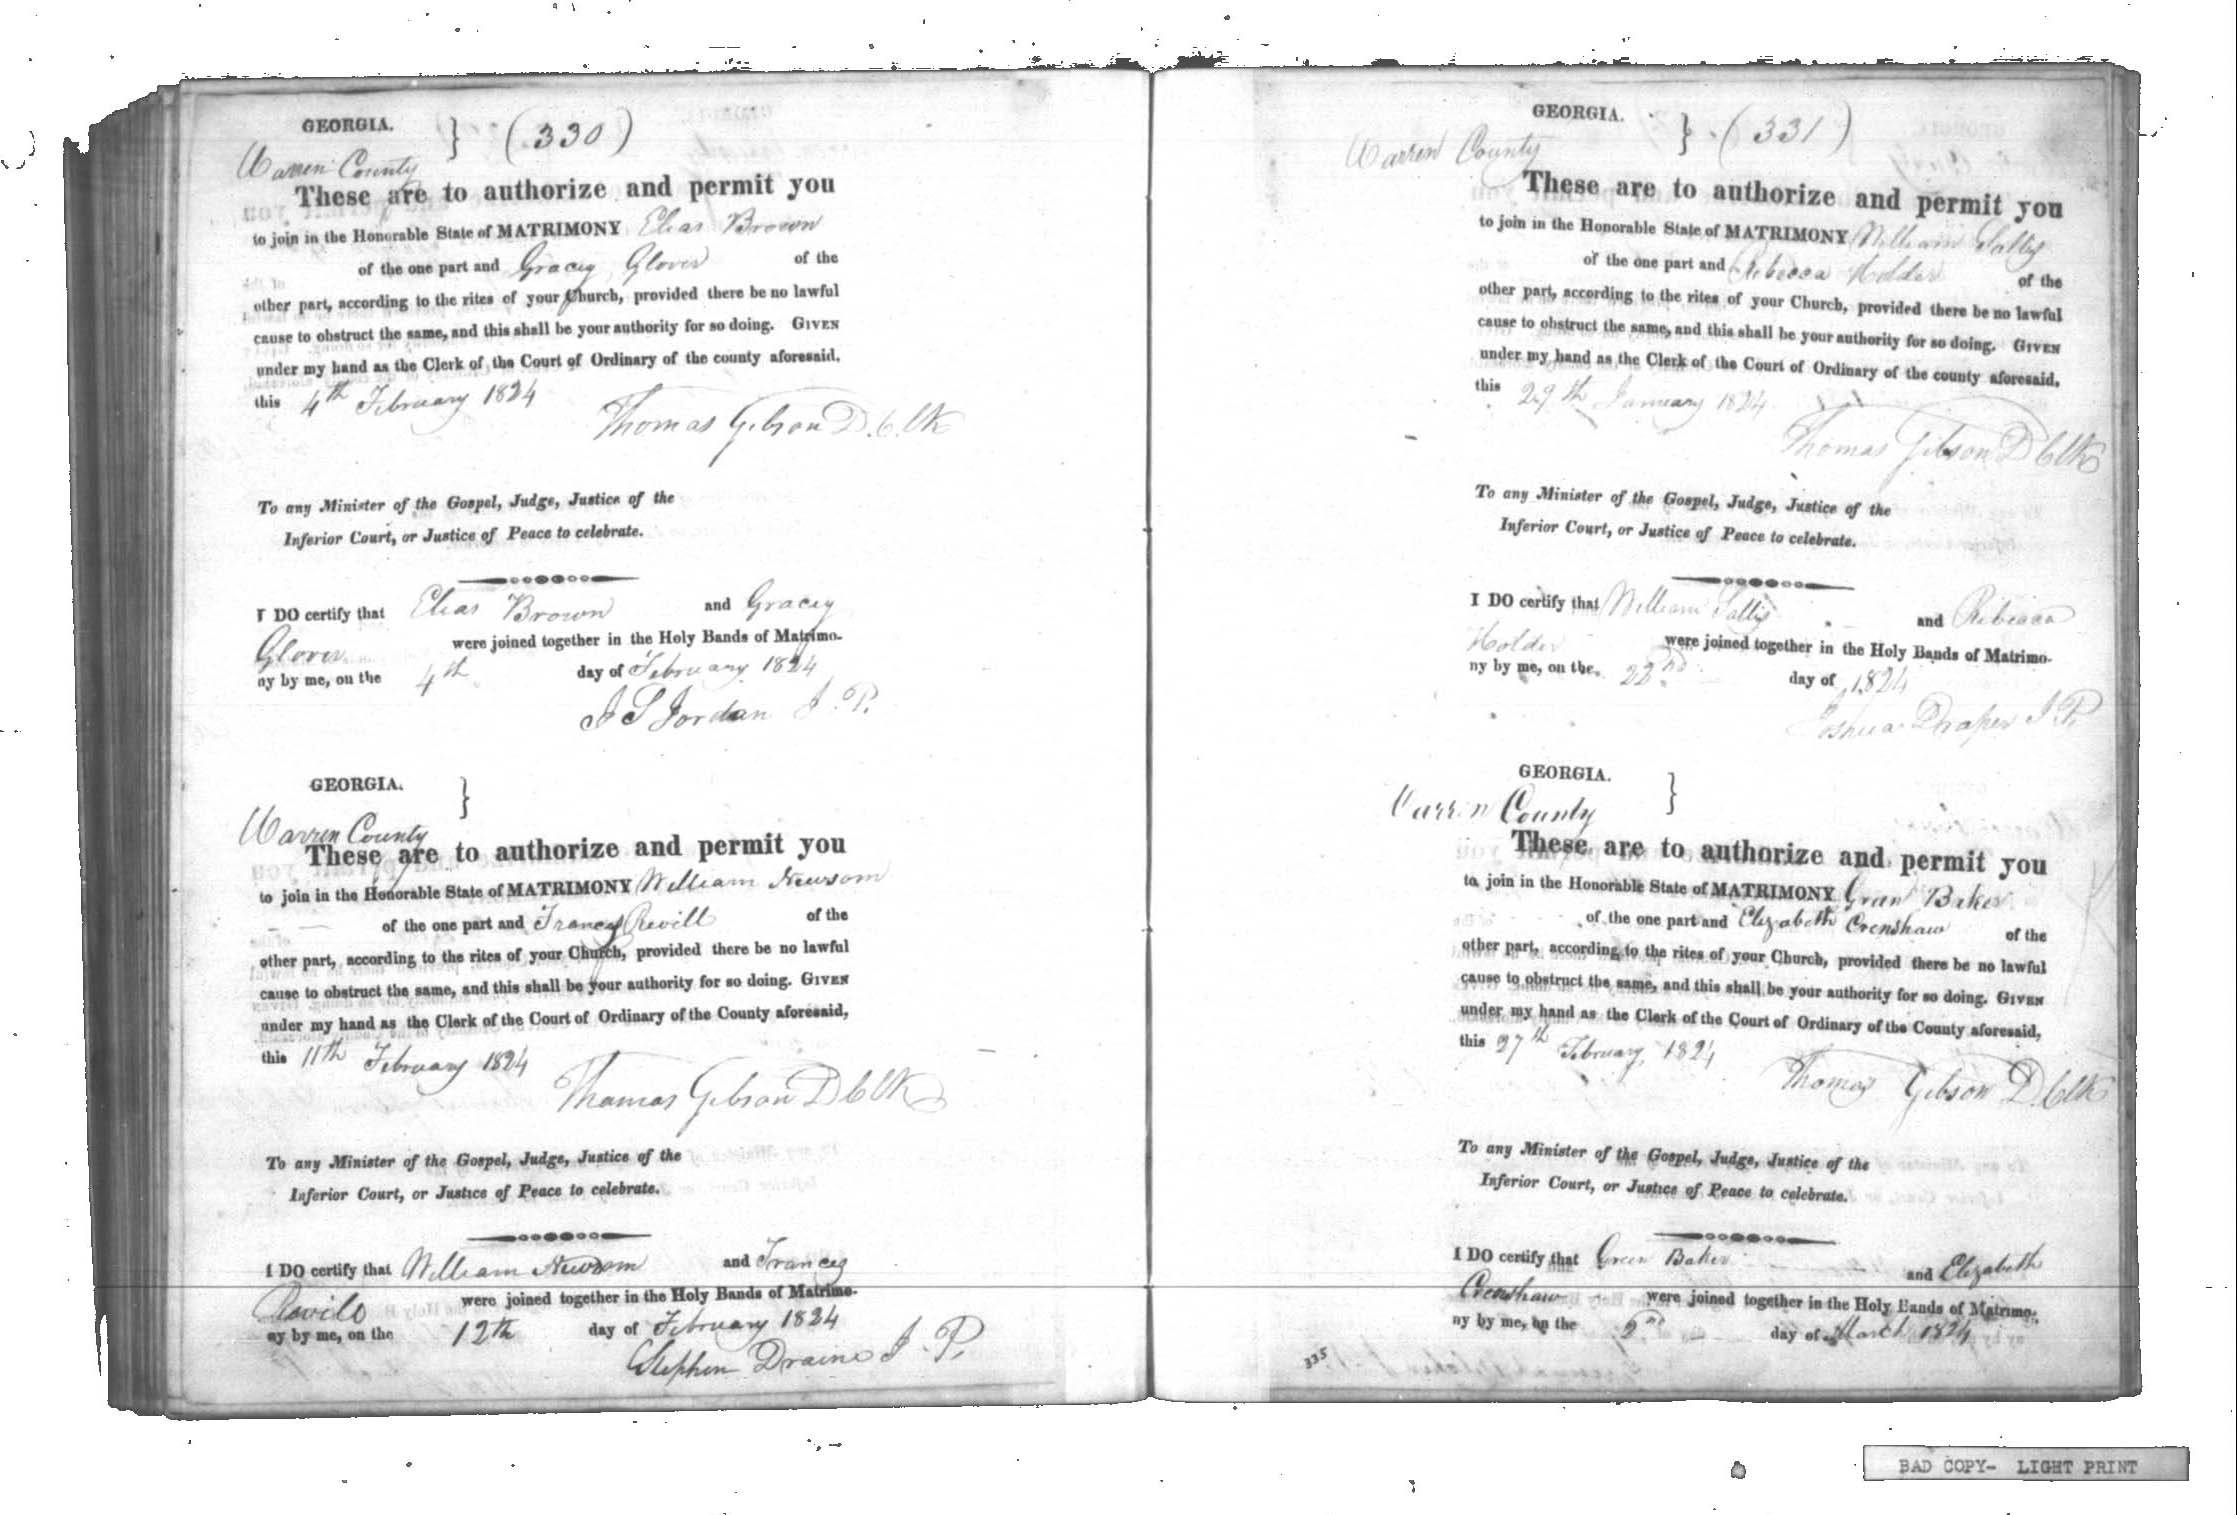 GEORGIA. } (330)
Warren County
These are to authorize and permit you
to join in the Honorable State of MATRIMONY Elias Brown
of the one part and Gracey Glover of the
other part, according to the rites of your Church, provided there be no lawful
cause to obstruct the same, and this shall be your authority for so doing. GIVEN
under my hand as the Clerk of the Court of Ordinary of the county aforesaid,
this 4th February 1824
Thomas Gibson D. Clk
To any Minister of the Gospel, Judge, Justice of the
Inferior Court, or Justice of Peace to celebrate.
I DO certify that Elias Brown and Gracey
Glover were joined together in the Holy Bands of Matrimo-
ny by me, on the 4th day of February 1824
J S Jordan J. P.
GEORGIA. }
Warren County
These are to authorize and permit you
to join in the Honorable State of MATRIMONY William Newsom
of the one part and Francy Revill of the
other part, according to the rites of your Church, provided there be no lawful
cause to obstruct the same, and this shall be your authority for so doing. GIVEN
under my hand as the Clerk of the Court of Ordinary of the County aforesaid,
this 11th February 1824
Thomas Gibson D Clk
To any Minister of the Gospel, Judge, Justice of the
Inferior Court, or Justice of Peace to celebrate.
I DO certify that William Newsom and Francy
Revill were joined together in the Holy Bands of Matrimo-
ny by me, on the 12th day of February 1824
Stephen Draine J. P.
GEORGIA. } (331)
Warren County
These are to authorize and permit you
to join in the Honorable State of MATRIMONY William Sallis
of the one part and Rebecca Holder of the
other part, according to the rites of your Church, provided there be no lawful
cause to obstruct the same, and this shall be your authority for so doing. GIVEN
under my hand as the Clerk of the Court of Ordinary of the county aforesaid,
this 29th January 1824
Thomas Gibson D Clk
To any Minister of the Gospel, Judge, Justice of the
Inferior Court, or Justice of Peace to celebrate.
I DO certify that William Sallis and Rebecca
Holder were joined together in the Holy Bands of Matrimo-
ny by me, on the 22nd day of 1824
Joshua Draper J. P.
GEORGIA. }
Warren County
These are to authorize and permit you
to join in the Honorable State of MATRIMONY Gran Baker
of the one part and Elizabeth Crenshaw of the
other part, according to the rites of your Church, provided there be no lawful
cause to obstruct the same, and this shall be your authority for so doing. GIVEN
under my hand as the Clerk of the Court of Ordinary of the County aforesaid,
this 27th February 1824
Thomas Gibson D. Clk
To any Minister of the Gospel, Judge, Justice of the
Inferior Court, or Justice of Peace to celebrate.
I DO certify that Green Baker and Elizabeth
Crenshaw were joined together in the Holy Bands of Matrimo-
ny by me, on the 2nd day of March 1824
335
BAD COPY- LIGHT PRINT